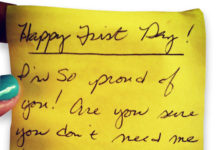 Happy First Day!
I'm so proud of
you! Are you sure
you don't need me